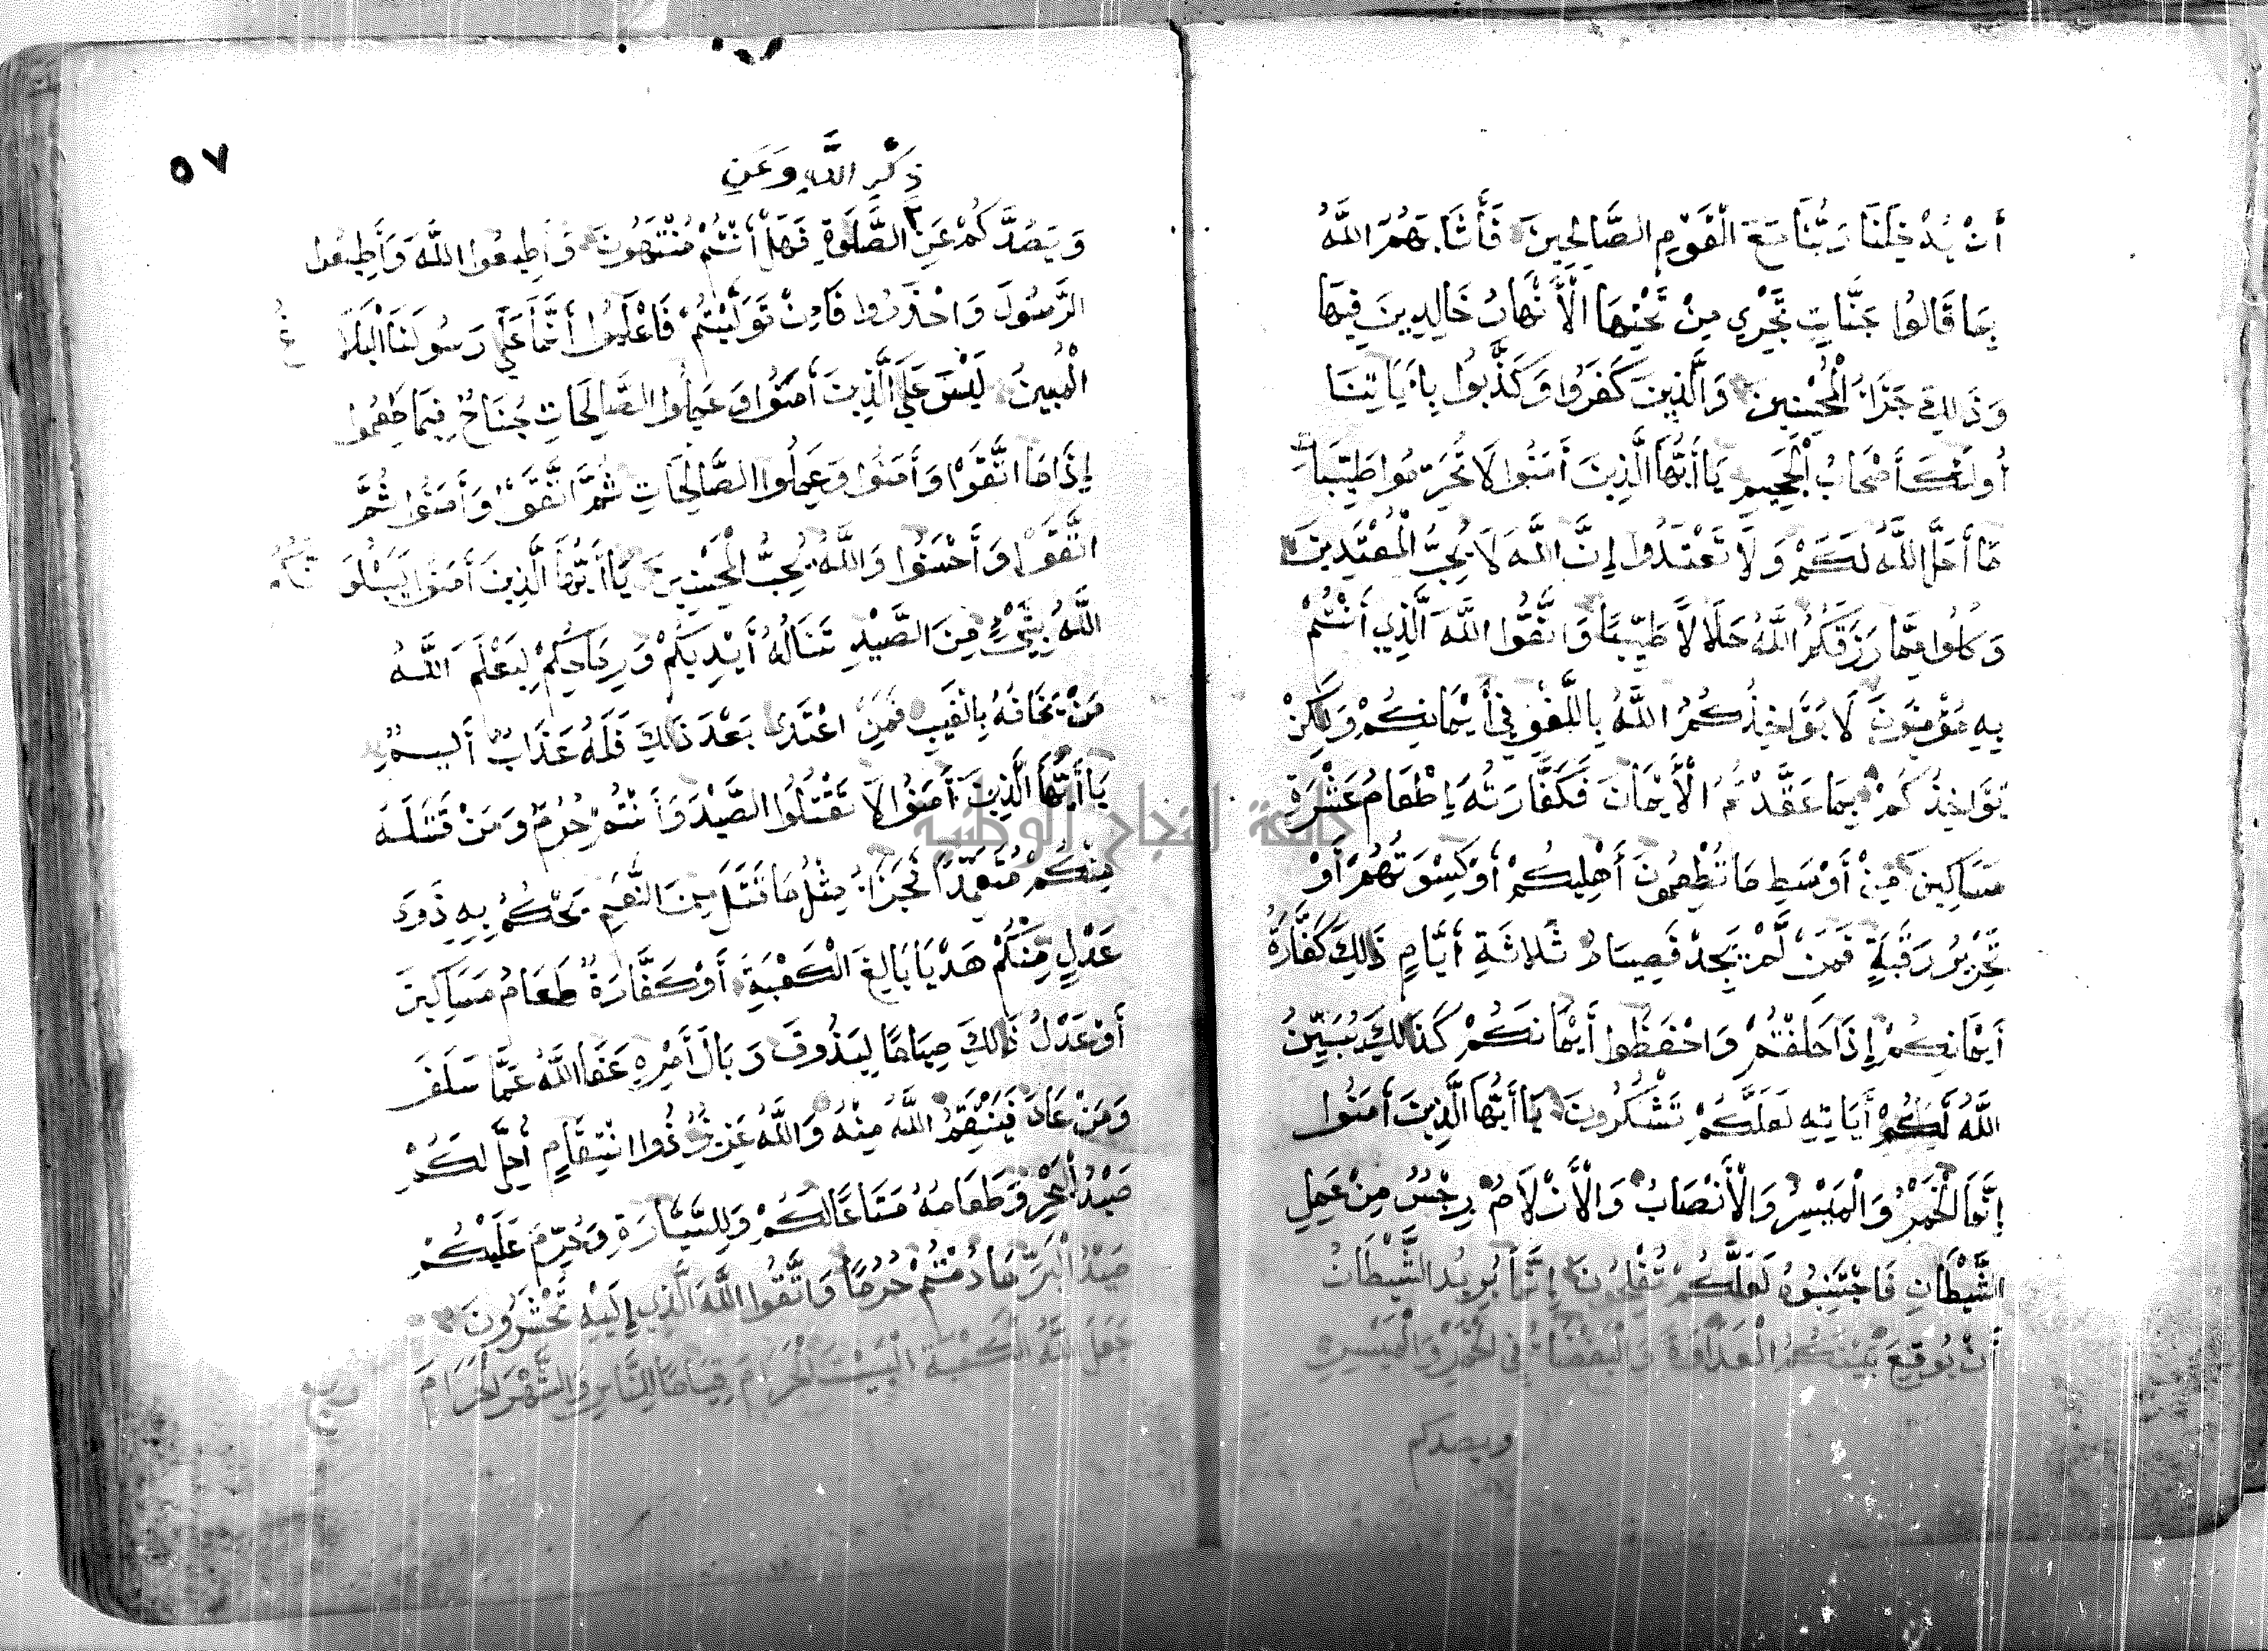 أَنْ يُدْخِلَنَا رَبُّنَا مَعَ الْقَوْمِ الصَّالِحِينَ فَأَثَابَهُمُ اللَّهُ
بِمَا قَالُوا جَنَّاتٍ تَجْرِي مِنْ تَحْتِهَا الْأَنْهَارُ خَالِدِينَ فِيهَا
وَذَلِكَ جَزَاءُ الْمُحْسِنِينَ وَالَّذِينَ كَفَرُوا وَكَذَّبُوا بِأَيَاتِنَا
أُولَئِكَ أَصْحَابُ الْجَحِيمِ يَاأَيُّهَا الَّذِينَ أَمَنُوا لَا تُحَرِّمُوا طَيِّبَاتِ
مَا أَحَلَّ اللَّهُ لَكُمْ وَلَا تَعْتَدُوا إِنَّ اللَّهَ لَا يُحِبُّ الْمُعْتَدِينَ
وَكُلُوا مِمَّا رَزَقَكُمُ اللَّهُ حَلَالًا طَيِّبًا وَاتَّقُوا اللَّهَ الَّذِي أَنْتُمْ
بِهِ مُؤْمِنُونَ لَا يُؤَاخِذُكُمُ اللَّهُ بِاللَّغْوِ فِي أَيْمَانِكُمْ وَلَكِنْ
يُؤَاخِذُكُمْ بِمَا عَقَّدْتُمُ الْأَيْمَانَ فَكَفَّارَتُهُ إِطْعَامُ عَشْرَةِ
مَسَاكِينَ مِنْ أَوْسَطِ مَا تُطْعِمُونَ أَهْلِيكُمْ أَوْ كِسْوَتُهُمْ أَوْ
تَحْرِيرُ رَقَبَةٍ فَمَنْ لَمْ يَجِدْ فَصِيَامُ ثَلَاثَةِ أَيَّامٍ ذَالِكَ كَفَّارَةُ
أَيْمَانِكُمْ إِذَا حَلَفْتُمْ وَاحْفَظُوا أَيْمَانَكُمْ كَذَالِكَ يُبَيِّنُ
اللَّهُ لَكُمْ أَيَاتِهِ لَعَلَّكُمْ تَشْكُرُونَ يَاأَيُّهَا الَّذِينَ أَمَنُوا
إِنَّمَا الْخَمْرُ وَالْمَيْسِرُ وَالْأَنْصَابُ وَالْأَزْلَامُ رِجْسٌ مِنْ عَمَلِ
الشَّيْطَانِ فَاجْتَنِبُوهُ لَعَلَّكُمْ تُفْلِحُونَ إِنَّمَا يُرِيدُ الشَّيْطَانُ
أَنْ يُوقِعَ بَيْنَكُمُ الْعَدَاوَةَ وَالْبَغْضَاءَ فِي الْخَمْرِ وَالْمَيْسِرِ
ويصدكم
٥٧
ذِكْرِ اللَّهِ وَعَنِ
وَيَصُدَّكُمْ عَنِ الصَّلَوةِ فَهَلْ أَنْتُمْ مُنْتَهُونَ وَأَطِيعُوا اللَّهَ وَأَطِيعُوا
الرَّسُولَ وَاحْذَرُوا فَإِنْ تَوَلَّيْتُمْ فَاعْلَمُوا أَنَّمَا عَلَى رَسُولِنَا الْبَلَا
غُ
الْمُبِينُ لَيْسَ عَلَى الَّذِينَ أَمَنُوا وَعَمِلُوا الصَّالِحَاتِ جُنَاحٌ فِيمَا طَعِمُوا
إِذَا مَا اتَّقَوْا وَأَمَنُوا وَعَمِلُوا الصَّالِحَاتِ ثُمَّ اتَّقَوْا وَأَمَنُوا ثُمَّ
اتَّقَوْا وَأَحْسَنُوا وَاللَّهُ يُحِبُّ الْمُحْسِنِينَ يَاأَيُّهَا الَّذِينَ أَمَنُوا لَيَبْلُوَ نَّكُمُ
اللَّهُ بِشَيْءٍ مِنَ الصَّيْدِ تَنَالُهُ أَيْدِيكُمْ وَرِمَاحُكُمْ لِيَعْلَمَ اللَّهُ
مَنْ يَخَافُهُ بِالْغَيْبِ فَمَنِ اعْتَدَى بَعْدَ ذَالِكَ فَلَهُ عَذَابٌ أَلِيمٌ
يَاأَيُّهَا الَّذِينَ أَمَنُوا لَا تَقْتُلُوا الصَّيْدَ وَأَنْتُمْ حُرُمٌ وَمَنْ قَتَلَهُ
مِنْكُمْ مُتَعَمِّدًا فَجَزَاءُ مِثْلُ مَا قَتَلَ مِنَ النَّعَمِ يَحْكُمُ بِهِ ذَوَا
عَدْلٍ مِنْكُمْ هَدْيًا بَالِغَ الْكَعْبَةِ أَوْ كَفَّارَةٌ طَعَامُ مَسَاكِينَ
أَوْ عَدْلُ ذَالِكَ صِيَامًا لِيَذُوقَ وَبَالَ أَمْرِهِ عَفَا اللَّهُ عَمَّا سَلَفَ
وَمَنْ عَادَ فَيَنْتَقِمُ اللَّهُ مِنْهُ وَاللَّهُ عَزِيزٌ ذُوا انْتِقَامٍ أُحِلَّ لَكُمْ
صَيْدُ الْبَحْرِ وَطَعَامُهُ مَتَاعًا لَكُمْ وَلِلسَّيَّارَةِ وَحُرِّمَ عَلَيْكُمْ
صَيْدُ الْبَرِّ مَا دُمْتُمْ حُرُمًا وَاتَّقُوا اللَّهَ الَّذِي إِلَيْهِ تُحْشَرُونَ
جَعَلَ اللَّهُ الْكَعْبَةَ الْبَيْتَ الْحَرَامَ قِيَامًا لِلنَّاسِ وَالشَّهْرَ الْحَرَامَ
جامعة النجاح الوطنية